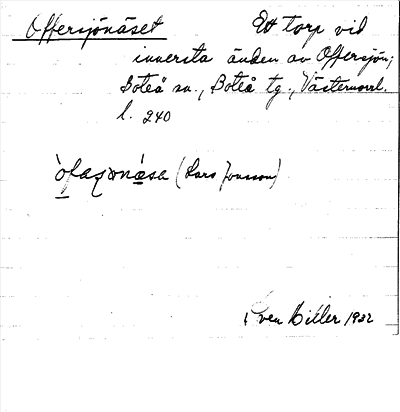 Offersjönäset
Ett torp vid
innersta änden av Offersjön;
Boteå sn., Boteå tg., Västernorrl.
l. 240
(Lars Jonsson)
Sven Hiller 1932